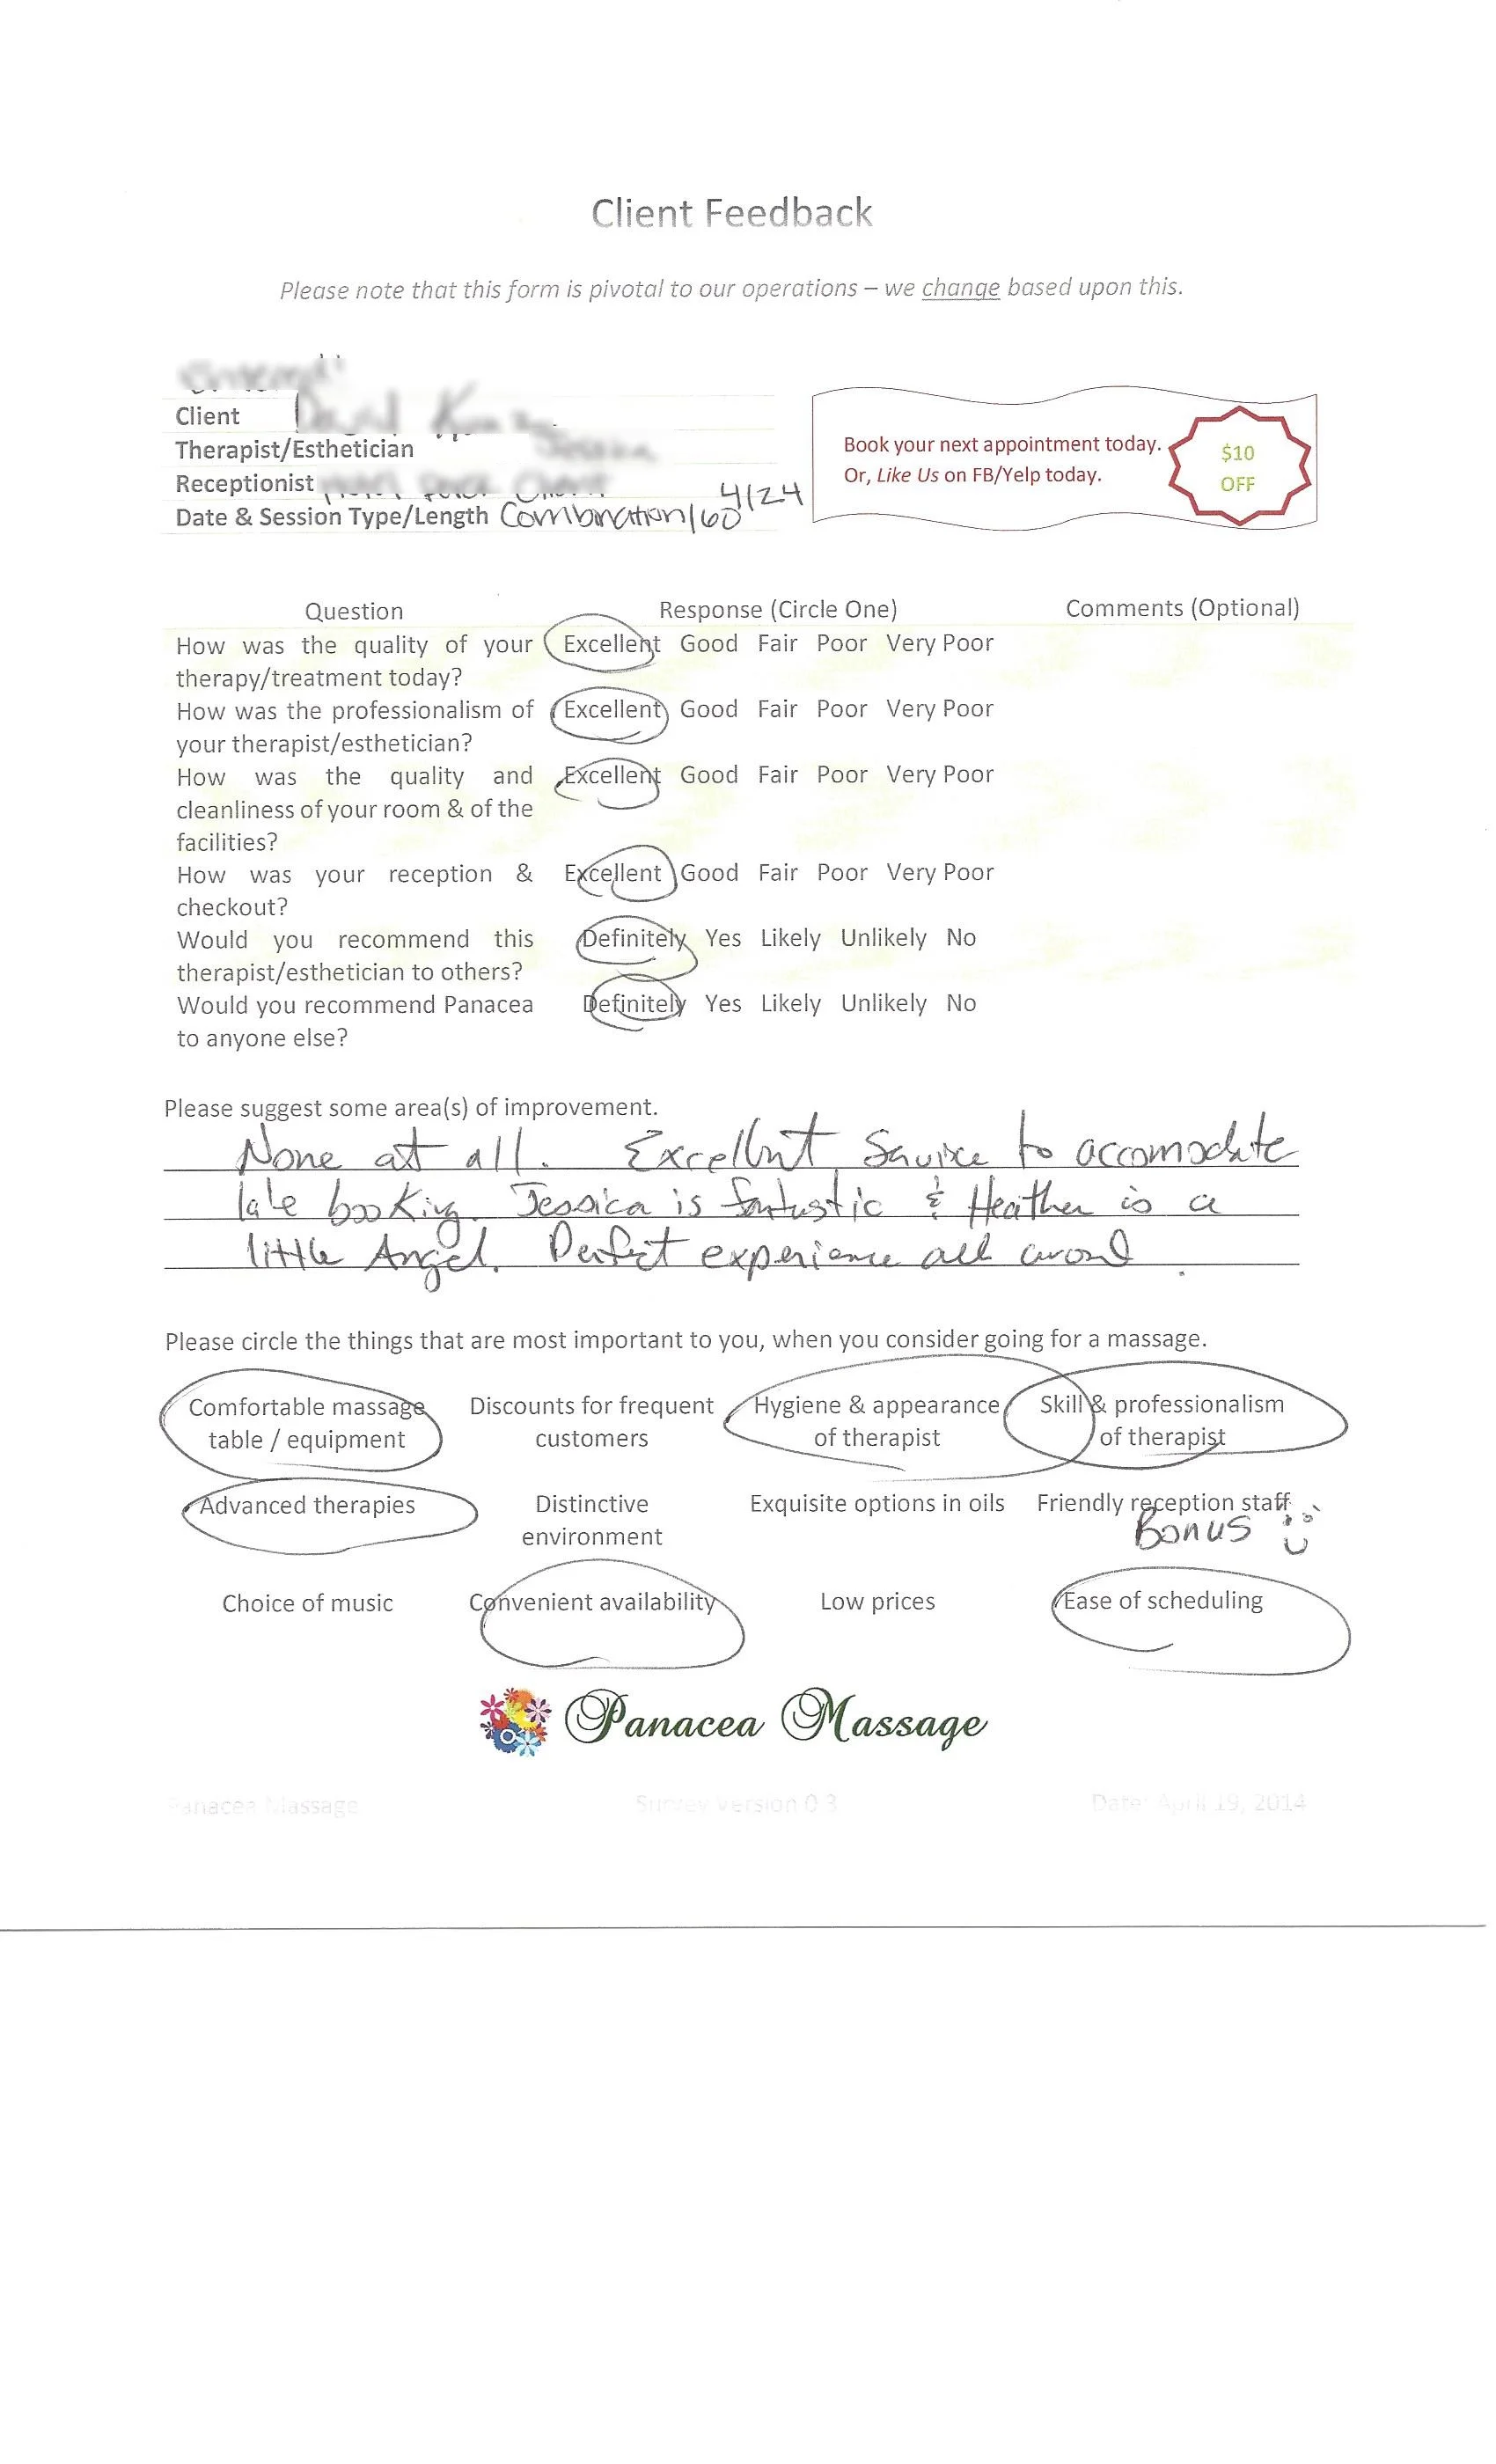 Client Feedback
Please note that this form is pivotal to our operations – we change based upon this.
Client
Therapist/Esthetician
Receptionist
Date & Session Type/Length Combination/60 4/24
Book your next appointment today.
Or, Like Us on FB/Yelp today.
$10
OFF
Question Response (Circle One) Comments (Optional)
How was the quality of your Excellent Good Fair Poor Very Poor
therapy/treatment today?
How was the professionalism of Excellent Good Fair Poor Very Poor
your therapist/esthetician?
How was the quality and Excellent Good Fair Poor Very Poor
cleanliness of your room & of the
facilities?
How was your reception & Excellent Good Fair Poor Very Poor
checkout?
Would you recommend this Definitely Yes Likely Unlikely No
therapist/esthetician to others?
Would you recommend Panacea Definitely Yes Likely Unlikely No
to anyone else?
Please suggest some area(s) of improvement.
None at all. Excellent Service to accomodate
late booking. Jessica is fantastic & Heather is a
little Angel. Perfect experience all around.
Please circle the things that are most important to you, when you consider going for a massage.
Comfortable massage Discounts for frequent Hygiene & appearance Skill & professionalism
table / equipment customers of therapist of therapist
Advanced therapies Distinctive Exquisite options in oils Friendly reception staff
environment Bonus
Choice of music Convenient availability Low prices Ease of scheduling
Panacea Massage
Panacea Massage Survey Version 0.3 Date: April 19, 2014